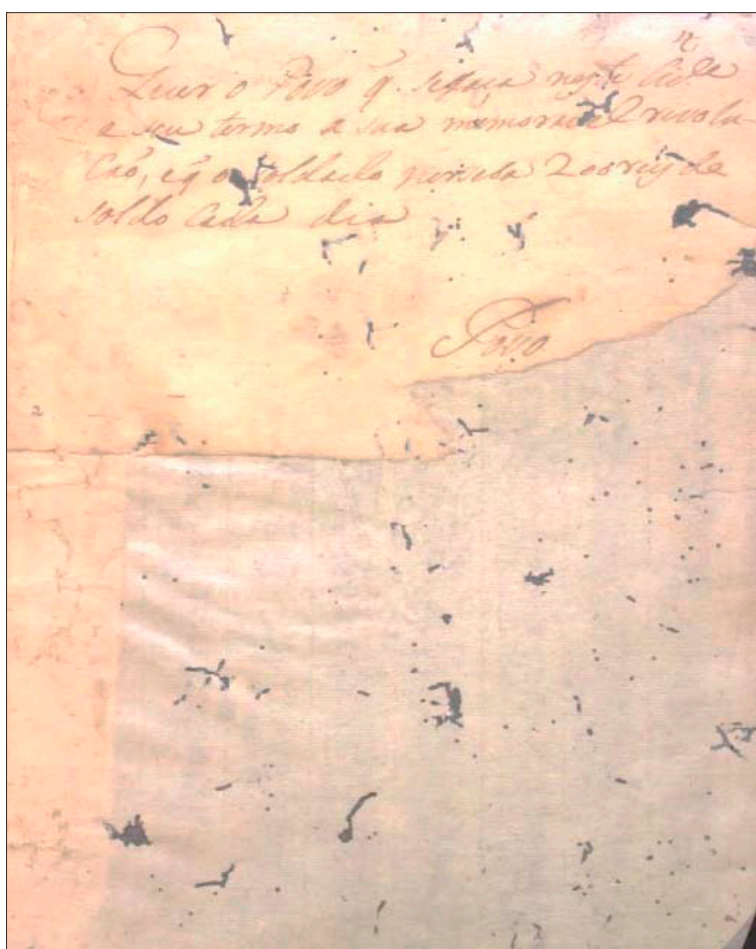 Quer o Povo q̃ se faça nesta Cid.e
e seu termo a sua memoravel revolu
caõ, eq̃ o soldado perceba 200 reis de
soldo Cada dia
Povo
2